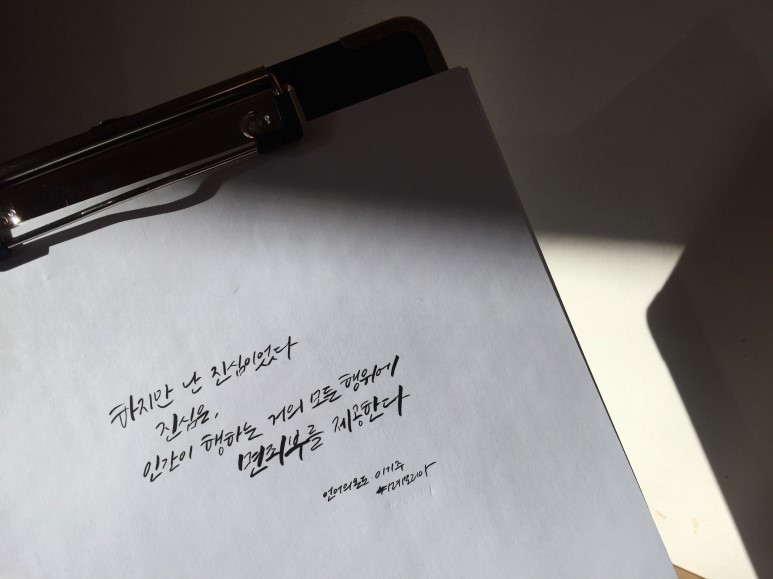 하지만 난 진심이었다
진심은,
인간이 행하는 거의 모든 행위에
면죄부를 제공한다
언어의온도 이기주